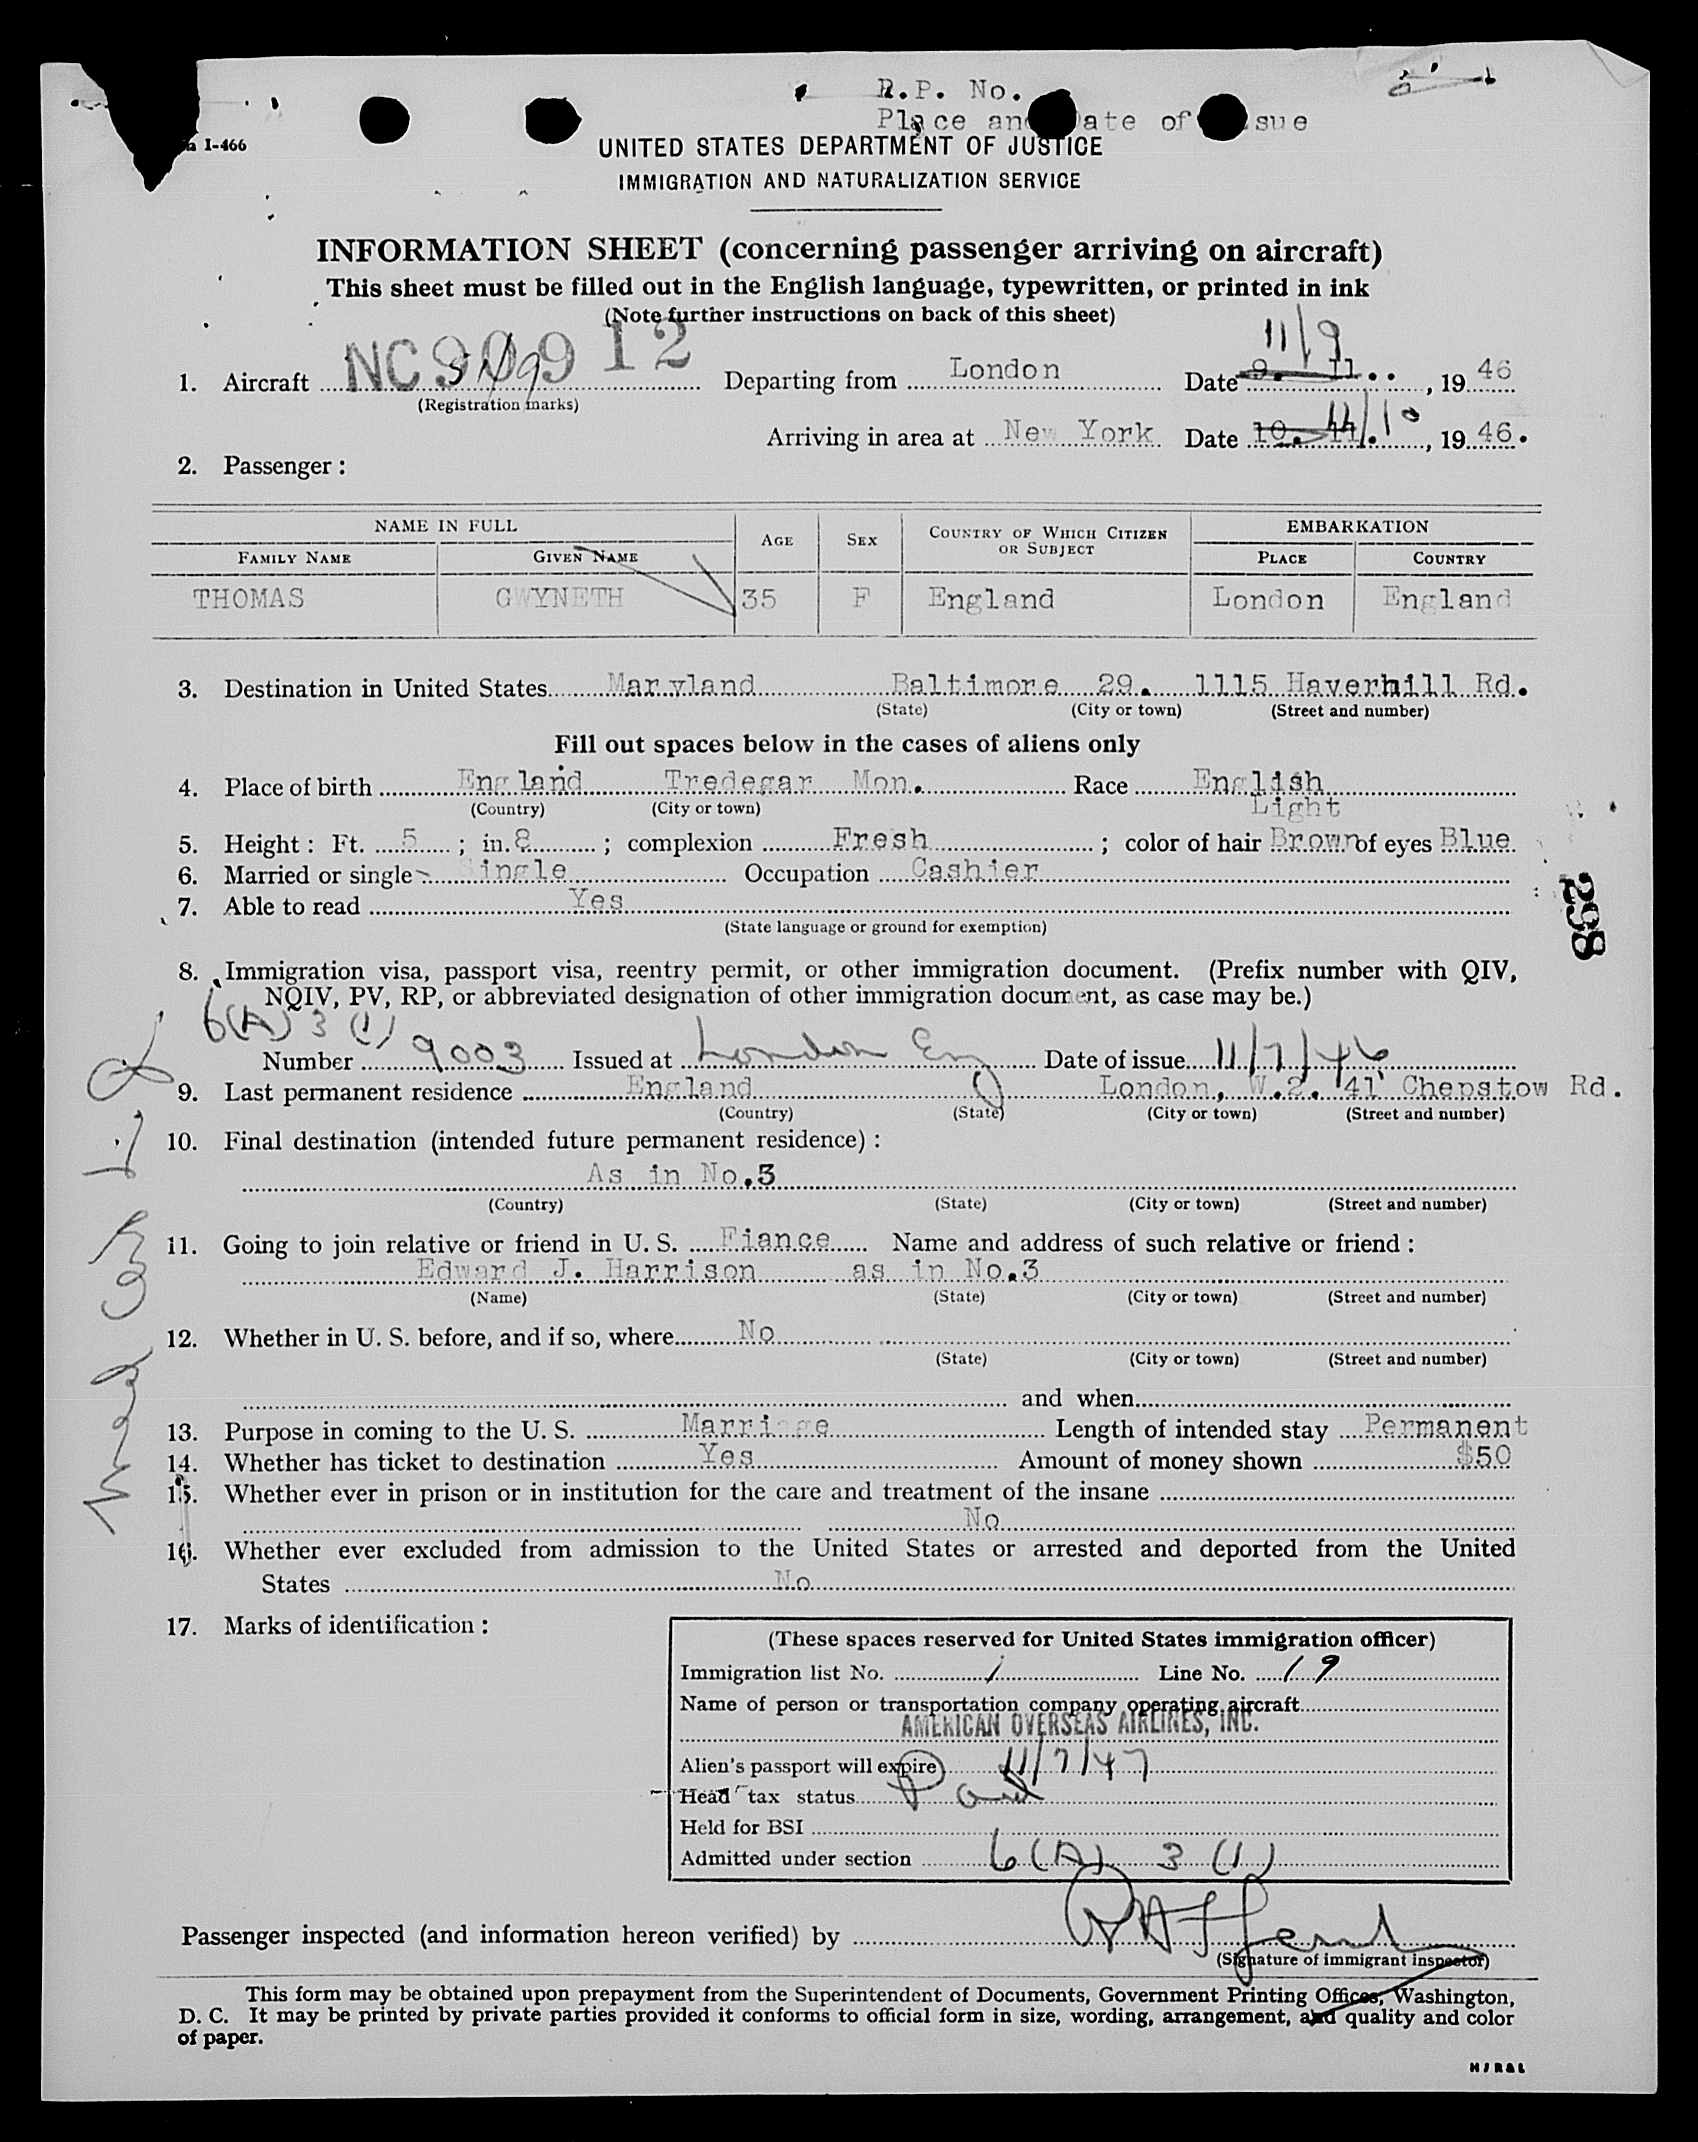 R.P. No.
Place and Date of Issue
I-466
UNITED STATES DEPARTMENT OF JUSTICE
IMMIGRATION AND NATURALIZATION SERVICE
INFORMATION SHEET (concerning passenger arriving on aircraft)
This sheet must be filled out in the English language, typewritten, or printed in ink
(Note further instructions on back of this sheet)
11/9
1. Aircraft NC90912 Departing from London Date 9. 11. , 1946
(Registration marks)
Arriving in area at New York Date 10. 11. 11/10, 1946.
2. Passenger:
NAME IN FULL AGE SEX COUNTRY OF WHICH CITIZEN OR SUBJECT EMBARKATION
FAMILY NAME GIVEN NAME PLACE COUNTRY
THOMAS GWYNETH 35 F England London England
3. Destination in United States Maryland Baltimore 29. 1115 Haverhill Rd.
(State) (City or town) (Street and number)
Fill out spaces below in the cases of aliens only
4. Place of birth England Tredegar Mon. Race English
(Country) (City or town) Light
5. Height: Ft. 5; in. 8; complexion Fresh; color of hair Brown of eyes Blue
6. Married or single Single Occupation Cashier
7. Able to read Yes
(State language or ground for exemption)
298
8. Immigration visa, passport visa, reentry permit, or other immigration document. (Prefix number with QIV,
NQIV, PV, RP, or abbreviated designation of other immigration document, as case may be.)
6(A) 3 (1)
Number 9003 Issued at London Eng Date of issue 11/7/46
9. Last permanent residence England London, W.2. 41 Chepstow Rd.
(Country) (State) (City or town) (Street and number)
10. Final destination (intended future permanent residence):
As in No.3
(Country) (State) (City or town) (Street and number)
11. Going to join relative or friend in U. S. Fiance Name and address of such relative or friend:
Edward J. Harrison as in No.3
(Name) (State) (City or town) (Street and number)
12. Whether in U. S. before, and if so, where No
(State) (City or town) (Street and number)
and when
13. Purpose in coming to the U. S. Marriage Length of intended stay Permanent
14. Whether has ticket to destination Yes Amount of money shown $50
15. Whether ever in prison or in institution for the care and treatment of the insane
No
16. Whether ever excluded from admission to the United States or arrested and deported from the United
States No
17. Marks of identification:
(These spaces reserved for United States immigration officer)
Immigration list No. 1 Line No. 19
Name of person or transportation company operating aircraft
AMERICAN OVERSEAS AIRLINES, INC.
Alien's passport will expire 11/7/47
Head tax status Paid
Held for BSI
Admitted under section 6(A) 3 (1)
Passenger inspected (and information hereon verified) by
(Signature of immigrant inspector)
This form may be obtained upon prepayment from the Superintendent of Documents, Government Printing Offices, Washington,
D. C. It may be printed by private parties provided it conforms to official form in size, wording, arrangement, and quality and color
of paper.